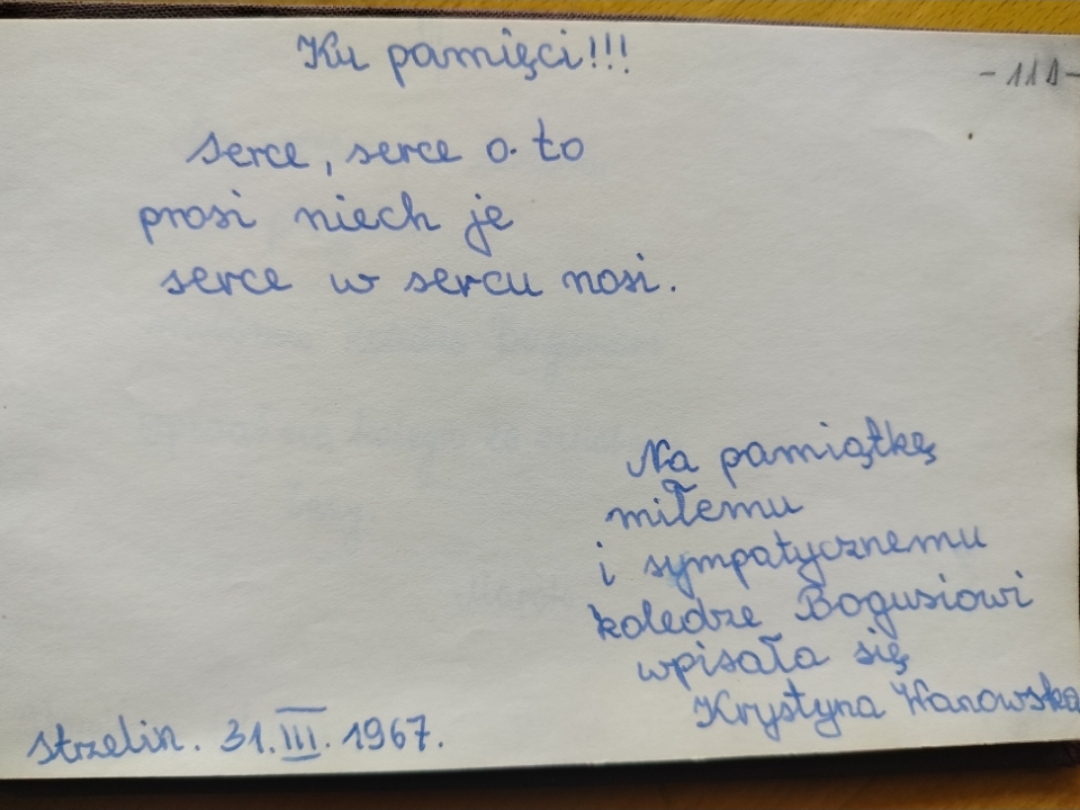 Ku pamięci!!!
-118-
serce, serce o to
prosi niech je
serce w sercu nosi.
Na pamiątkę
miłemu
i sympatycznemu
koledze Bogusiowi
wpisała się
Krystyna Wanowska
Strzelin. 31.III.1967.